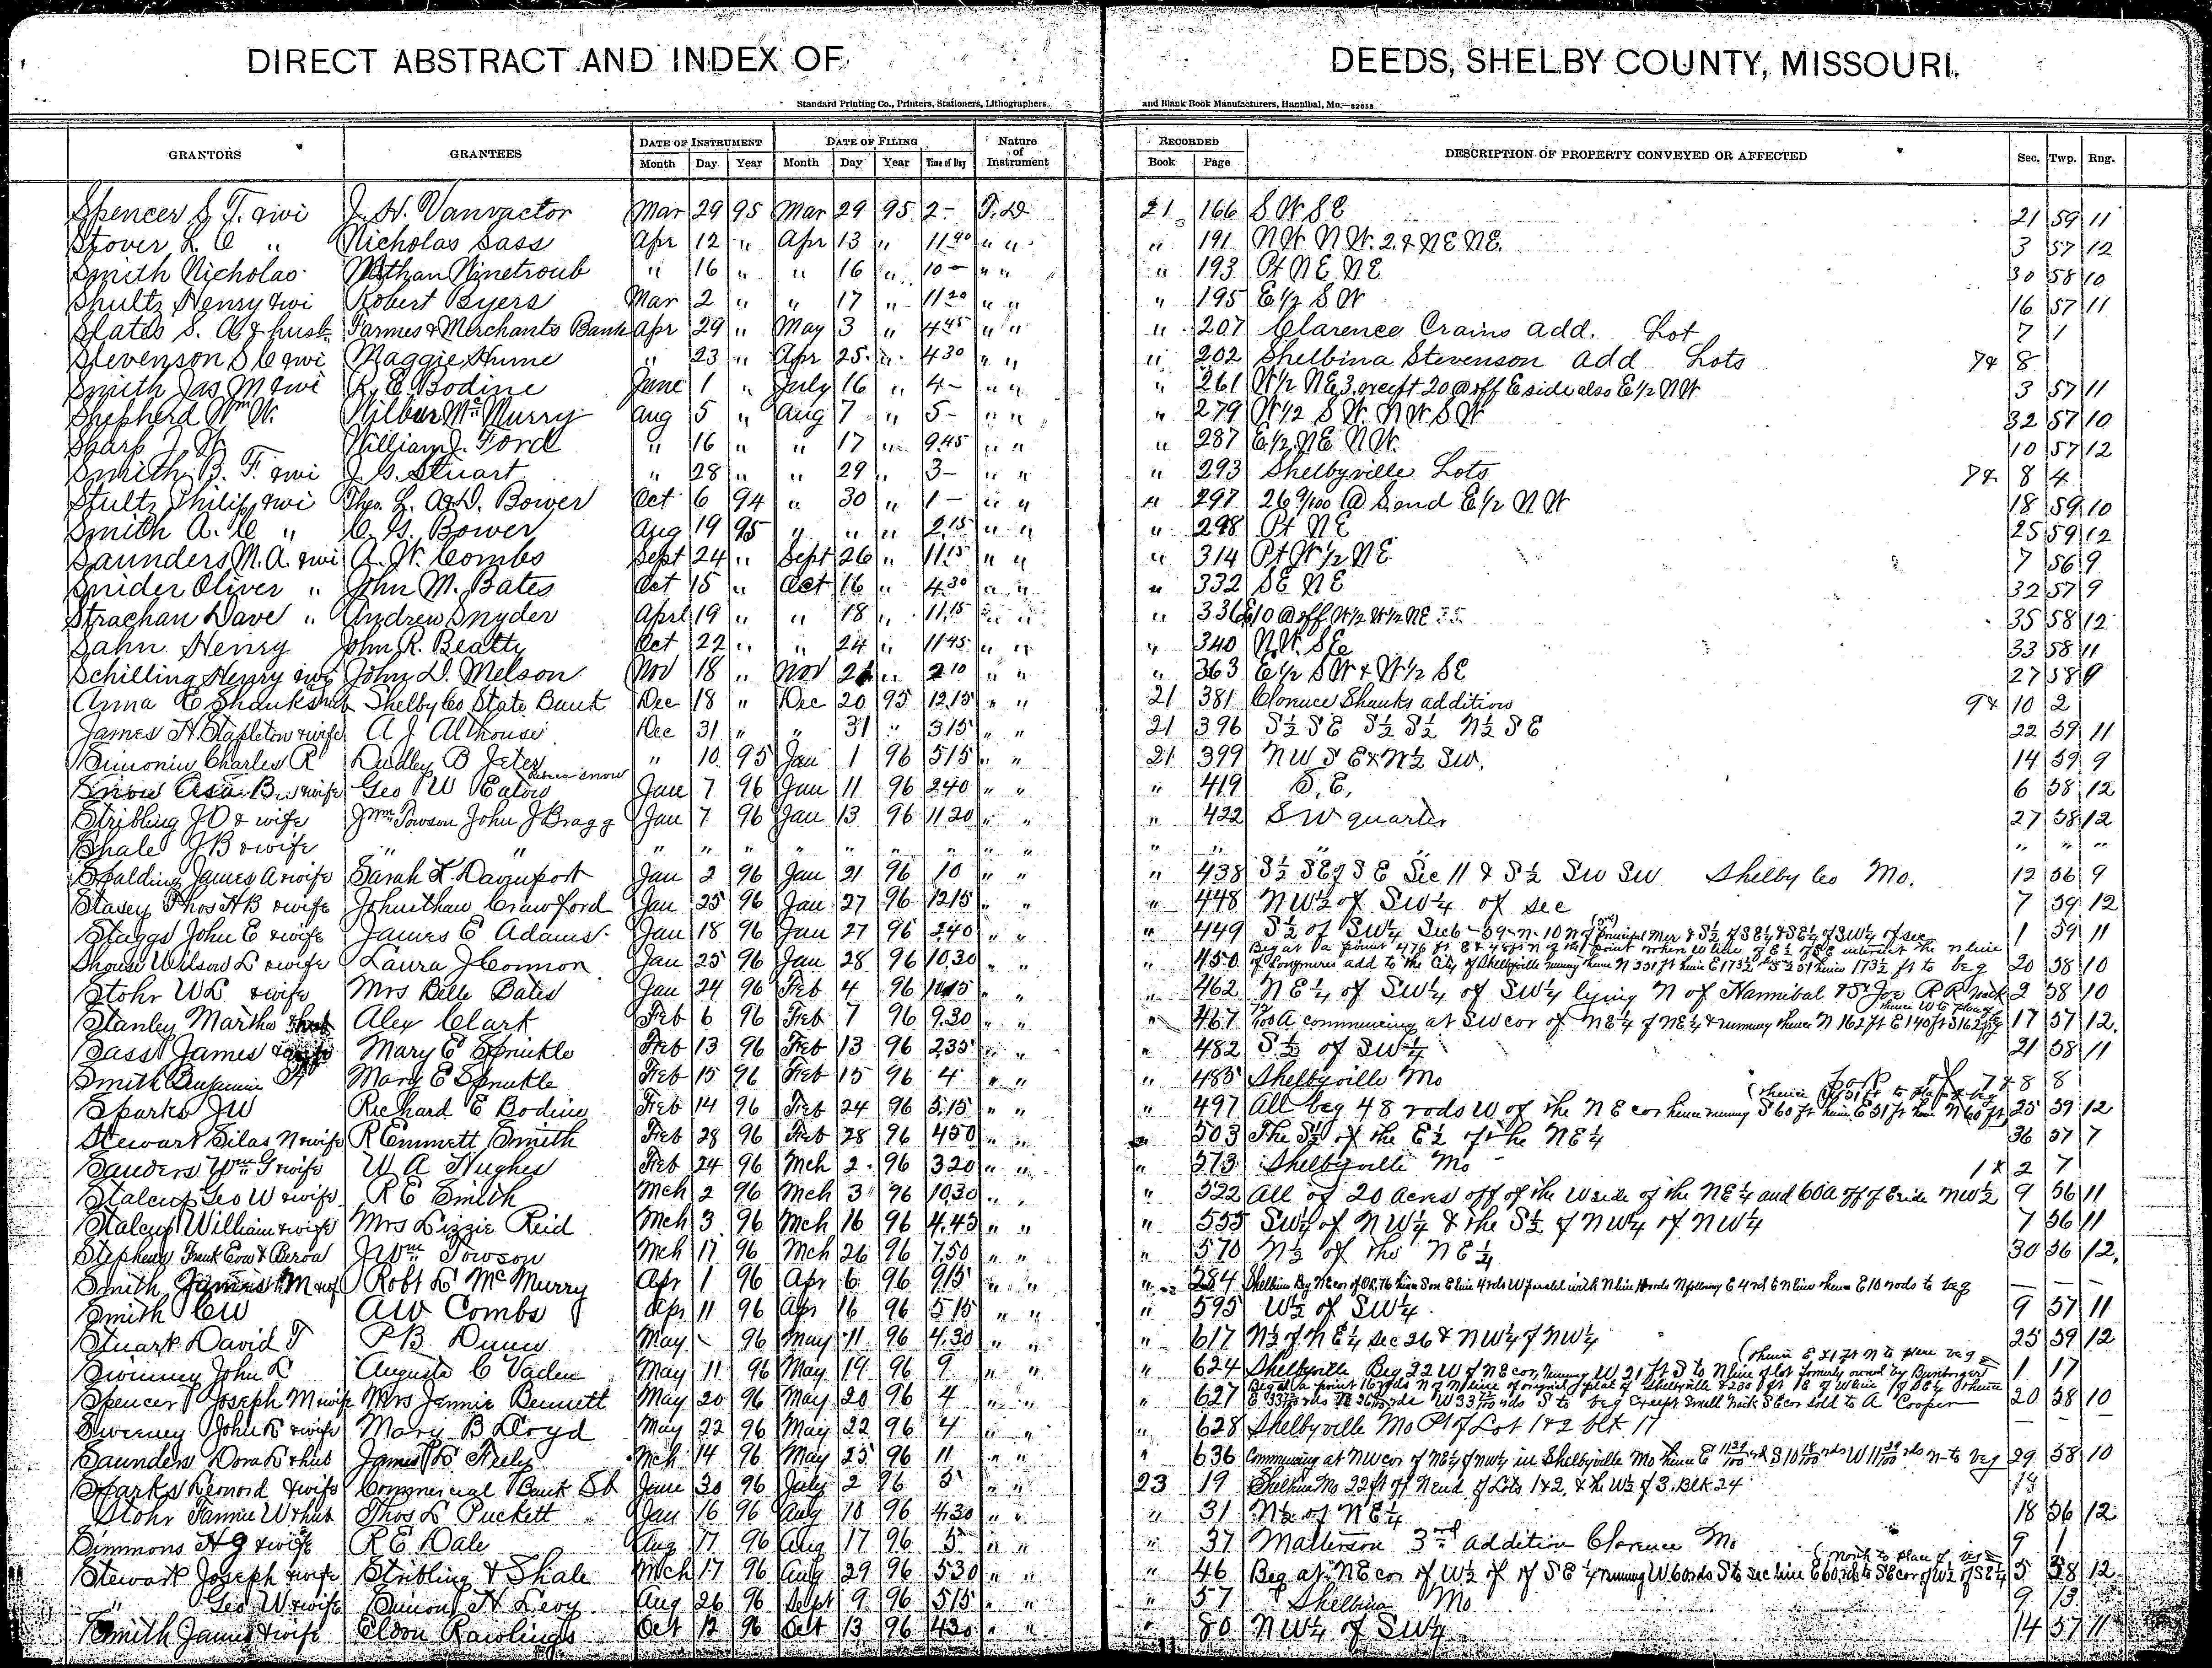 DIRECT ABSTRACT AND INDEX OF DEEDS, SHELBY COUNTY, MISSOURI.
Standard Printing Co., Printers, Stationers, Lithographers and Blank Book Manufacturers, Hannibal, Mo.
GRANTORS GRANTEES DATE OF INSTRUMENT DATE OF FILING Nature of Instrument RECORDED DESCRIPTION OF PROPERTY CONVEYED OR AFFECTED Sec. Twp. Rng.
Month Day Year Month Day Year Time of Day Book Page
Spencer S. T. & wi J. H. Vanvactor Mar 29 95 Mar 29 95 2- T.D 21 166 S W S E 21 59 11
Stover L. C " Nicholas Sass Apr 12 " Apr 13 " " " " 191 N W. N W. 2. & N E N E. 3 57 12
Smith Nicholas Nathan Ninetroub " 16 " " 16 " 10- " " " 193 Pt N E N E 30 58 10
Shultz Henry & wi Robert Byers Mar 2 " " 17 " 11 20 " " " 195 E 1/2 S W 16 57 11
Slates S. A & husb. Farmes & Merchants Bank Apr 29 " May 3 " 4 45 " " " 207 Clarence Crains add. Lot 7 1
Stevenson S C & wi Maggie Hume " 23 " Apr 25 " 4 30 " " " 202 Shelbina Stevenson add Lots 7 & 8
Smith Jas M & wi R. E. Bodine June 1 " July 16 " 4- " " " 261 W 1/2 N E 3. except 20 @ off E side also E 1/2 N W 3 57 11
Shepherd Wm W. Wilbur McMurry Aug 5 " Aug 7 " 5- " " " 279 W 1/2 S W. N W S W 32 57 10
Sharp J. W. William J. Ford " 16 " " 17 " 9 45 " " " 287 E 1/2 N E N W. 10 57 12
Smith B. F. & wi J. G. Stuart " 28 " " 29 " 3- " " " 293 Shelbyville Lots 7 & 8 4
Stultz Philip & wi Theo. L. A & D. Bower Oct 6 94 " 30 " 1- " " " 297 26 9/100 @ S. end E 1/2 N W 18 59 10
Smith A. C " C. G. Bower Aug 19 95 " " " 2 15 " " " 298 Pt N E 25 59 12
Saunders M. A. & wi A. W. Combs Sept 24 " Sept 26 " 11 15 " " " 314 Pt W 1/2 N E 7 56 9
Snider Oliver " John M. Bates Oct 15 " Oct 16 " 4 30 " " " 332 S E N E 32 57 9
Strachan Dave " Andrew Snyder April 19 " " 18 " 11 15 " " " 336 10 @ off W 1/2 W 1/2 N E 35 58 12
Sahn Henry John R. Beatty Oct 22 " " 24 " 11 45 " " " 340 N W. S E 33 58 11
Schilling Henry & wi John D. Melson Nov 18 " Nov " 2 10 " " " 363 E 1/2 S W & W 1/2 S E 27 58 9
Anna E Shanks hub Shelby Co State Bank Dec 18 " Dec 20 95 12 15 " " 21 381 Clarence Shanks addition 9 & 10 2
James H. Stapleton & wife A J Althouse Dec 31 " " 31 " 3 15 " " 21 396 S 1/2 S E S 1/2 S 1/2 N 1/2 S E 22 59 11
Simonin Charles R Dudley B Jeter " 10 95 Jan 1 96 5 15 " " 21 399 N W S E & N 1/2 S W. 14 59 9
Snow Asa B. & wife Geo W Eaton Jan 7 96 Jan 11 96 2 40 " " " 419 S. E. 6 58 12
Stribling J D & wife J Wm Towson John J Bragg Jan 7 96 Jan 13 96 11 20 " " " 422 S W quarter 27 58 12
Shale J B & wife " " " " " " " " " " " " " " " "
Spalding James A & wife Sarah L. Davenport Jan 2 96 Jan 21 96 10 " " " 438 S 1/2 S E of S E Sec 11 & S 1/2 S W S W Shelby Co Mo. 12 56 9
Stasey Thos H B & wife Johnathan Crawford Jan 25 96 Jan 27 96 12 15 " " " 448 N W 1/2 of S W 1/4 of sec 7 59 12
Staggs John E & wife James E Adams Jan 18 96 Jan 27 96 2 40 " " " 449 S 1/2 of S W 1/4 Sec 6 - 59 n. 10 1 59 11
Shouse Wilson L & wife Laura J Connon Jan 25 96 Jan 28 96 10 30 " " " 450 Beg at a point 476 ft E of Longmires add to the City of Shelbyville 20 58 10
Stohr W L & wife Mrs Belle Bates Jan 24 96 Feb 4 96 " " " 462 N E 1/4 of S W 1/4 of S W 1/4 lying N of Hannibal & St Joe R R track 2 58 10
Stanley Martha Alex Clark Feb 6 96 Feb 7 96 9.30 " " " 467 commencing at S W cor of N E 1/4 of N E 1/4 & running thence N 162 ft E 140 ft S 162 ft 17 57 12.
Sass James Mary E Sprinkle Feb 13 96 Feb 13 96 2 35 " " " 482 S 1/2 of S W 1/4 21 58 11
Smith Benjamin F Mary E Sprinkle Feb 15 96 Feb 15 96 4 " " " 485 Shelbyville Mo 7 & 8 8
Sparks J W Richard E Bodine Feb 14 96 Feb 24 96 5.15 " " " 497 All beg 48 rods W of the N E cor thence running S 60 ft thence E 51 ft thence N 60 ft 25 59 12
Stewart Silas N & wife R Emmett Smith Feb 28 96 Feb 28 96 4 50 " " " 503 The S 1/2 of the E 1/2 of the N E 1/4 36 57 7
Sanders Wm G & wife W A Hughes Feb 24 96 Mch 2 96 3 20 " " " 573 Shelbyville Mo 1 & 2 7
Stalcup Geo W & wife R E Smith Mch 2 96 Mch 3 96 10.30 " " 522 All of 20 acres off of the W side of the N E 1/4 and 60 a off of E side N W 1/2 9 56 11
Stalcup William & wife Mrs Lizzie Reid Mch 3 96 Mch 16 96 4.45 " " " 555 S W 1/4 of N W 1/4 & the S 1/2 of N W 1/4 of N W 1/4 7 56 11
Stephens Frank J Wm Towson Mch 17 96 Mch 26 96 7.50 " " " 570 N 1/2 of the N E 1/4 30 56 12.
Smith James M & wf Robt L McMurry Apr 1 96 Apr 6 96 9 15 " " " 584 — — —
Smith C W A W Combs Apr 11 96 Apr 16 96 5 15 " " " 595 W 1/2 of S W 1/4 9 57 11
Stuart David T P B Dunn May 96 May 11 96 4.30 " " " 617 N 1/2 of N E 1/4 Sec 26 & N W 1/4 of N W 1/4 25 59 12
Swinney John L Augusta C Vaden May 11 96 May 19 96 9 " " " 624 Shelbyville Beg 22 W of N E cor, running W 21 ft S to N line of lot formerly owned by 1 17
Spencer Joseph M & wife Mrs Jennie Bennett May 20 96 May 20 96 4 " " " 627 20 58 10
Sweeney John L & wife Mary B Doyd May 22 96 May 22 96 4 " " " 628 Shelbyville Mo Pt of Lot 1 & 2 blk 17 — —
Saunders Dora L & hub James L Feely Mch 14 96 May 25 96 11 " " " 636 Commencing at N W cor of N E 1/4 of N W 1/4 in Shelbyville Mo 29 58 10
Sparks Leonard & wife Commercial Bank Sb June 30 96 July 2 96 5 " " 23 19 Shelbina Mo 22 ft off N end of Lots 1 & 2, & the W 1/2 of 3. Blk 24
Stohr Fannie W & hub Thos L Puckett Jan 16 96 Aug 10 96 4.30 " " " 31 N 1/2 of N E 1/4 18 56 12
Simmons H G & wife R E Dale Aug 17 96 Aug 17 96 5 " " " 37 Matterson 3rd addition Clarence Mo 9 1
Stewart Joseph & wife Stribling & Shale Mch 17 96 Aug 29 96 5 30 " " " 46 Beg at N E cor of W 1/2 of S E 1/4 running W 60 rds S to sec line E 60 rds to S E cor of W 1/2 of S E 1/4 5 58 12
" Geo W & wife Simon H Levy Aug 26 96 Sept 9 96 5 15 " " " 57 Shelbina Mo 9 13
Smith James & wife Eldon Rawlings Oct 12 96 Oct 13 96 4 30 " " " 80 N W 1/4 of S W 1/4 14 57 11